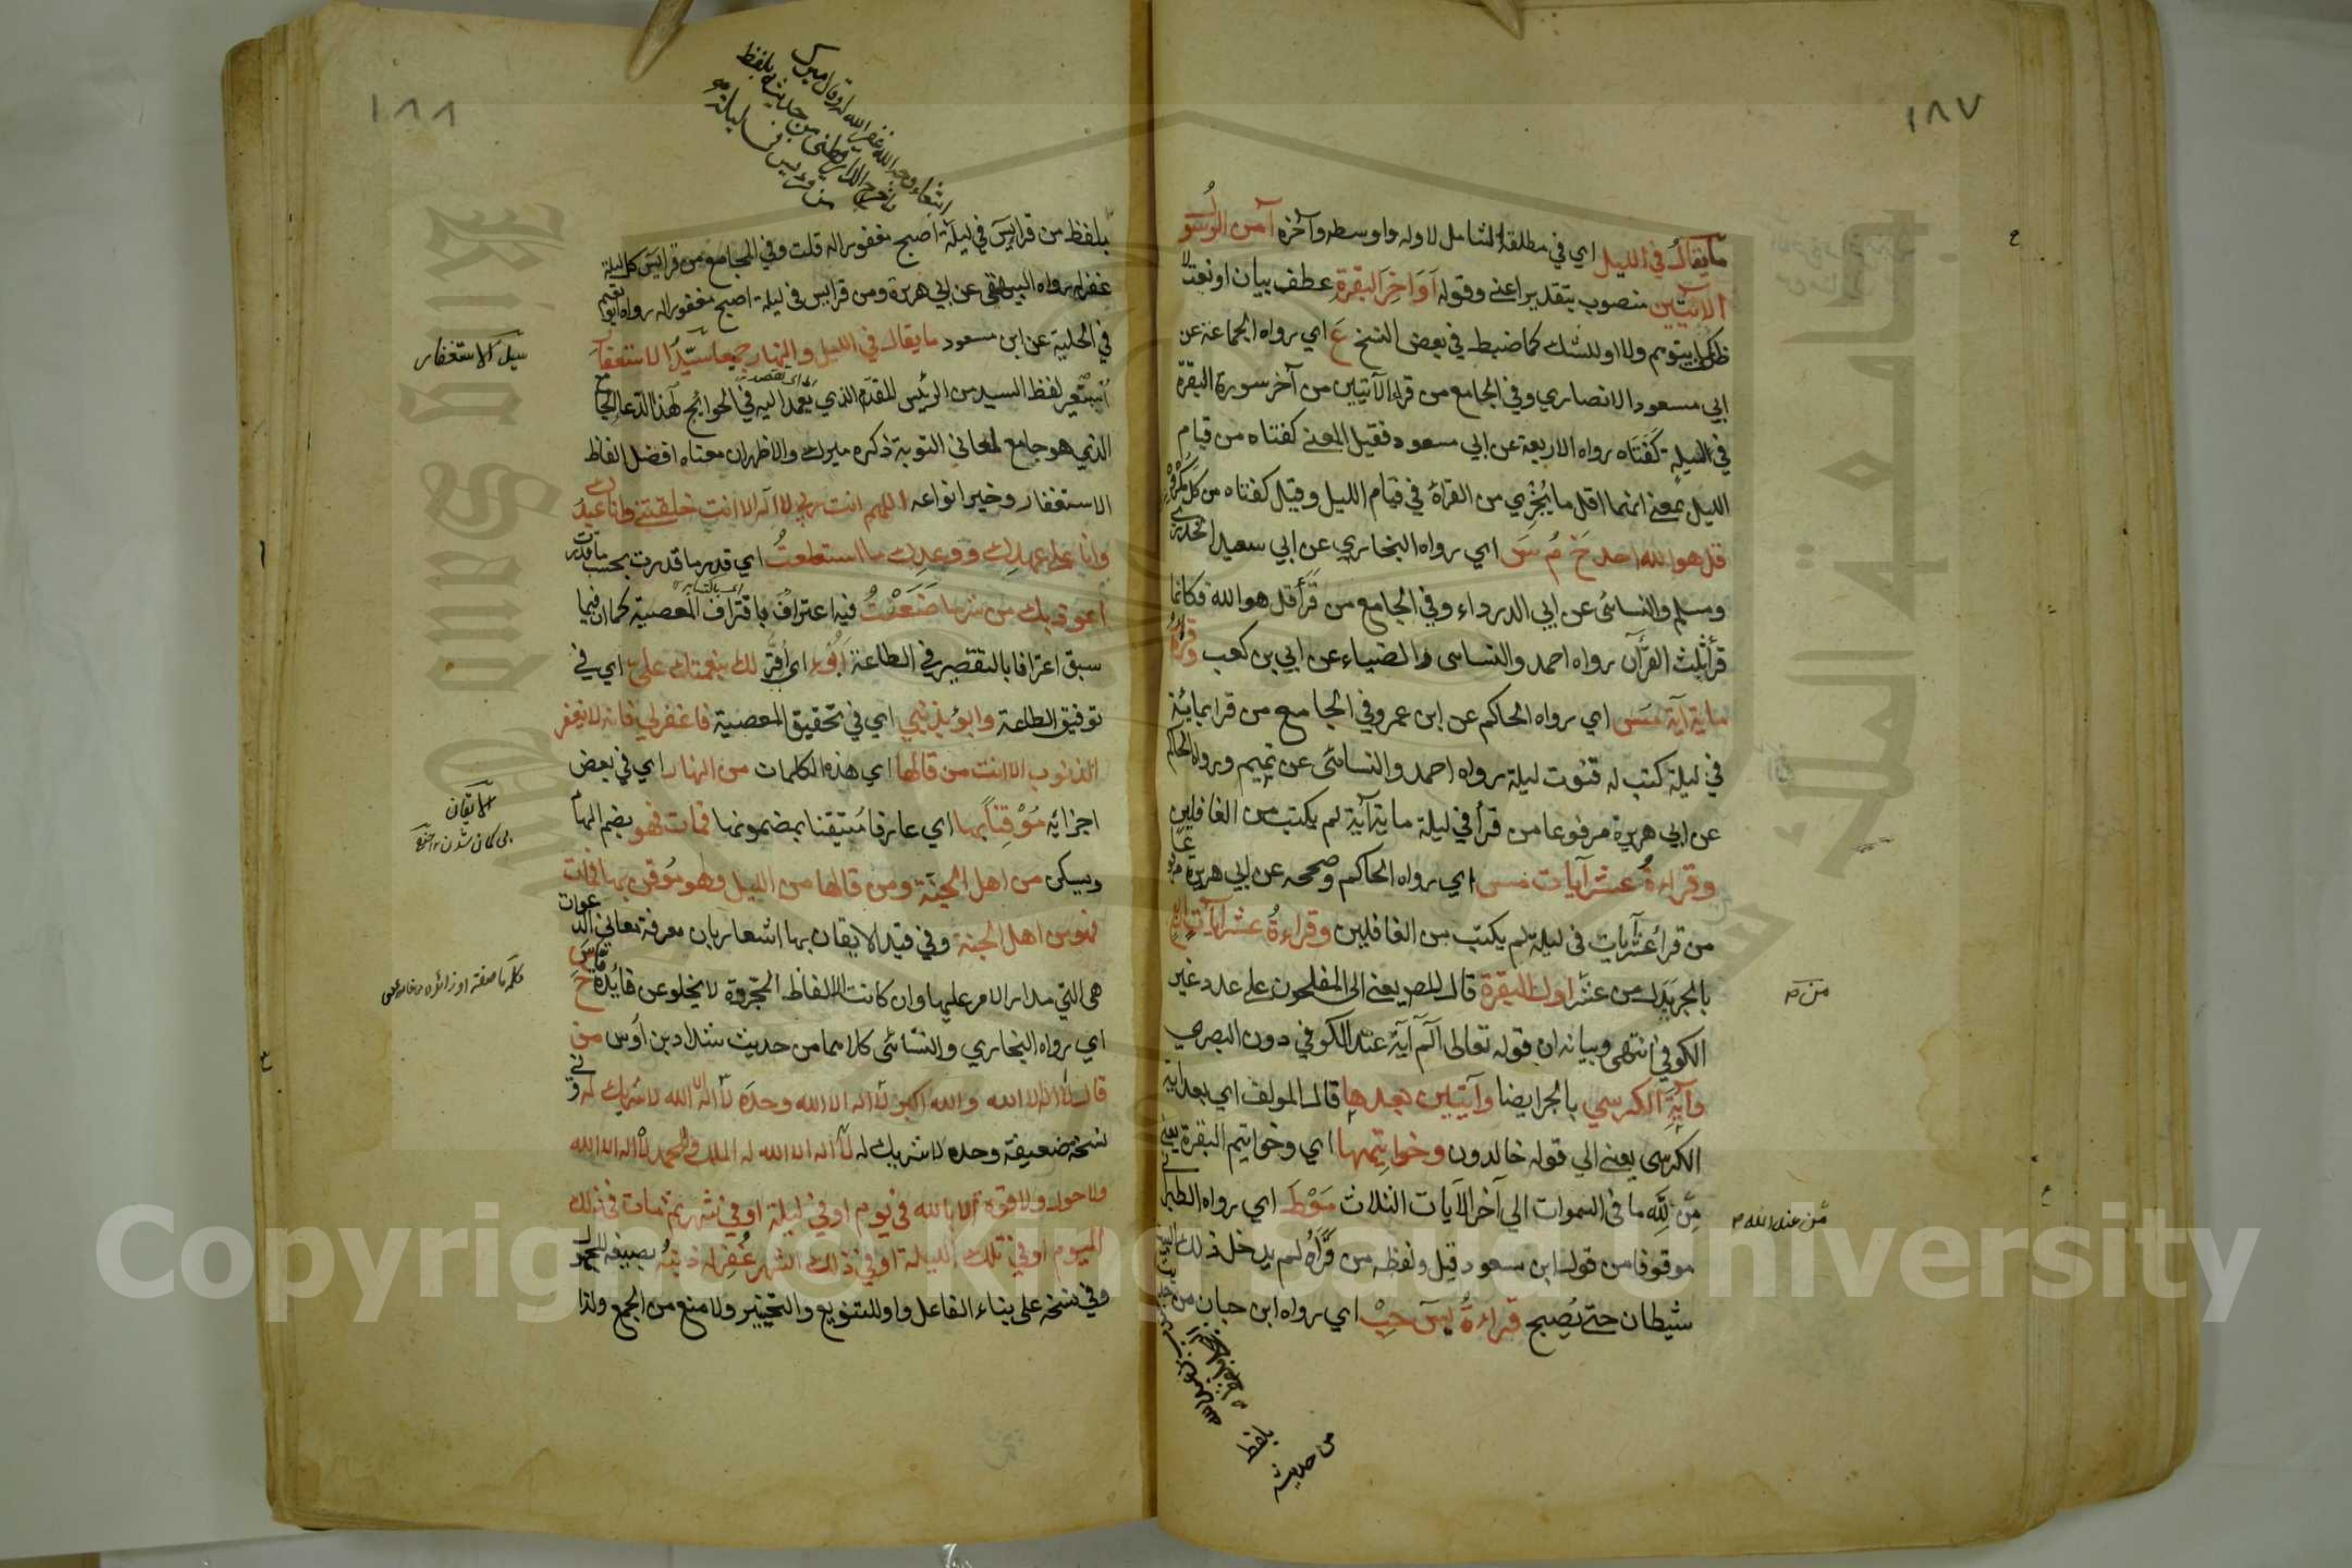 ١٨٧
ما يقال في الليل اي في مطلقه الشامل لاوله واوسطه وآخره آمن الرسو
الآيتين منصوب بتقدير اعني وقوله آواخر البقرة عطف بيان او نعت لا
ظرف كما يتوهم ولا او للشك كما ضبط في بعض النسخ ع اي رواه الجماعة عن
ابي مسعود الانصاري وفي الجامع من قرا الآيتين من آخر سورة البقرة
في ليلة كفتاه رواه الاربعة عن ابي مسعود فقيل المعنى كفتاه من قيام
الليل بمعنى انهما اقل ما يجزي من القراة في قيام الليل وقيل كفتاه من كل مكروه
قل هو الله احد خ م س اي رواه البخاري عن ابي سعيد الخدري
ومسلم والنسائى عن ابي الدرداء وفي الجامع من قرأ قل هو الله فكانما
قرأ ثلث القرآن رواه احمد والنساى والضياء عن ابي بن كعب وقراة
ماية آية مس اي رواه الحاكم عن ابن عمرو وفي الجامع من قرا بمائة
في ليلة كتب له قنوت ليلة رواه احمد والنسائى عن تميم ورواه الحاكم
عن ابي هريرة مرفوعا من قرأ في ليلة ماية آية لم يكتب من الغافلين
وقراءة عشر آيات مس اي رواه الحاكم وصححه عن ابي هريرة
من قرأ عشر آيات في ليلة لم يكتب من الغافلين وقراءة عشر آيات
بالجر بدل من عشر اول البقرة قال المص يعني الى المفلحون على عدد غير
الكوفي انتهى وبيانه ان قوله تعالى الم آية عند الكوفي دون البصري
وآية الكرسي بالجر ايضا وآيتين بعدها قال المولف اي بعد اية
الكرسي يعني الي قوله خالدون وخواتيمها اي وخواتيم البقرة يعني
من لله ما في السموات الي آخر الآيات الثلاث مو ط اي رواه الطبراني
موقوفا من قول ابن مسعود قيل ولفظه من قرأه لم يدخل ذلك البيت
شيطان حتى يصبح قراءة يس حب اي رواه ابن حبان من
بلفظ
من حديثه
من عند الله
١٨٨
بلفظ من قرا يس في ليلة اصبح مغفورا له قلت وفي الجامع من قرا يس كل ليلة
غفر له رواه البيهقي عن ابي هريرة ومن قرا يس في ليلة اصبح مغفورا له رواه ابو نعيم
في الحلية عن ابن مسعود ما يقال في الليل والنهار جميعا سيد الاستغفار
استعير لفظ السيد من الرئيس المقدم الذي يعمد اليه في الحوايج لهذا الدعا الجامع
الذي هو جامع لمعاني التوبة ذكره ميرك والاظهر ان معناه افضل الفاظ
الاستغفار وخير انواعه اللهم انت ربي لا اله الا انت خلقتني وانا عبدك
وانا على عهدك ووعدك ما استطعت اي قدر ما قدرت بحسب ما قدرت
اعوذ بك من شر ما صنعت فيه اعتراف باقتراف المعصية كما ان فيما
سبق اعترافا بالتقصير في الطاعة ابوء اي اقر لك بنعمتك علي اي في
توفيق الطاعة وابوء بذنبي اي في تحقيق المعصية فاغفر لي فانه لا يغفر
الذنوب الا انت من قالها اي هذه الكلمات من النهار اي في بعض
اجزائه موقنا بها اي عارفا متيقنا بمضمونها فمات فهو بضم الها
ويسكن من اهل الجنة ومن قالها من الليل وهو موقن بها فمات
فهو من اهل الجنة وفي قيد الايقان بها اشعار بان معرفة معاني الدعوات
هي التي مدار الامر عليها وان كانت الالفاظ المجردة لا يخلو عن فايدة خ س
اي رواه البخاري والنسائى كلاهما من حديث شداد بن اوس من
قال لا اله الا الله والله اكبر لا اله الا الله وحده لا اله الا الله لا شريك له وفي
نسخة ضعيفة وحده لا شريك له لا اله الا الله له الملك وله الحمد لا اله الا الله
ولا حول ولا قوة الا بالله في يوم او في ليلة او في شهر ثم مات في ذلك
اليوم او في تلك الليلة او في ذلك الشهر غفر له ذنبه بصيغة المجهول
وفي نسخة على بناء الفاعل واو للتنويع والتخيير ولا منع من الجمع ولذا
سيد الاستغفار
الايقان
Copyright © King Saud University